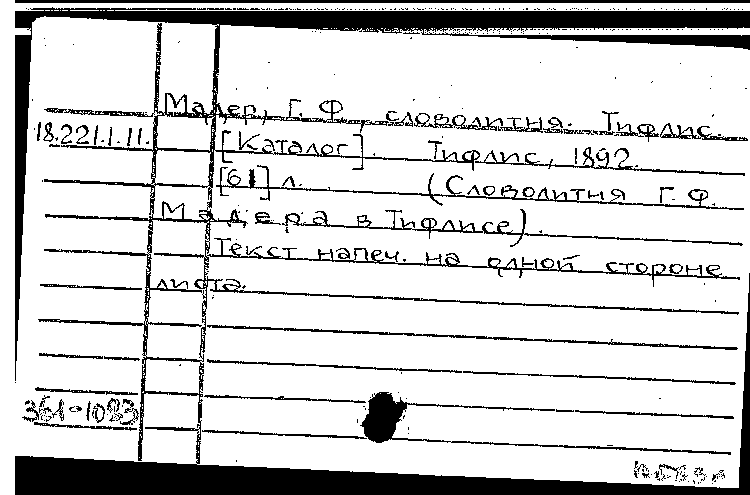 Мадер, Г. Ф., словолитня. Тифлис.
18.221.1.11. [Каталог]. Тифлис, 1892.
[61] л. (Словолитня Г. Ф.
Мадера в Тифлисе).
Текст напеч. на одной стороне
листа.
361-1083